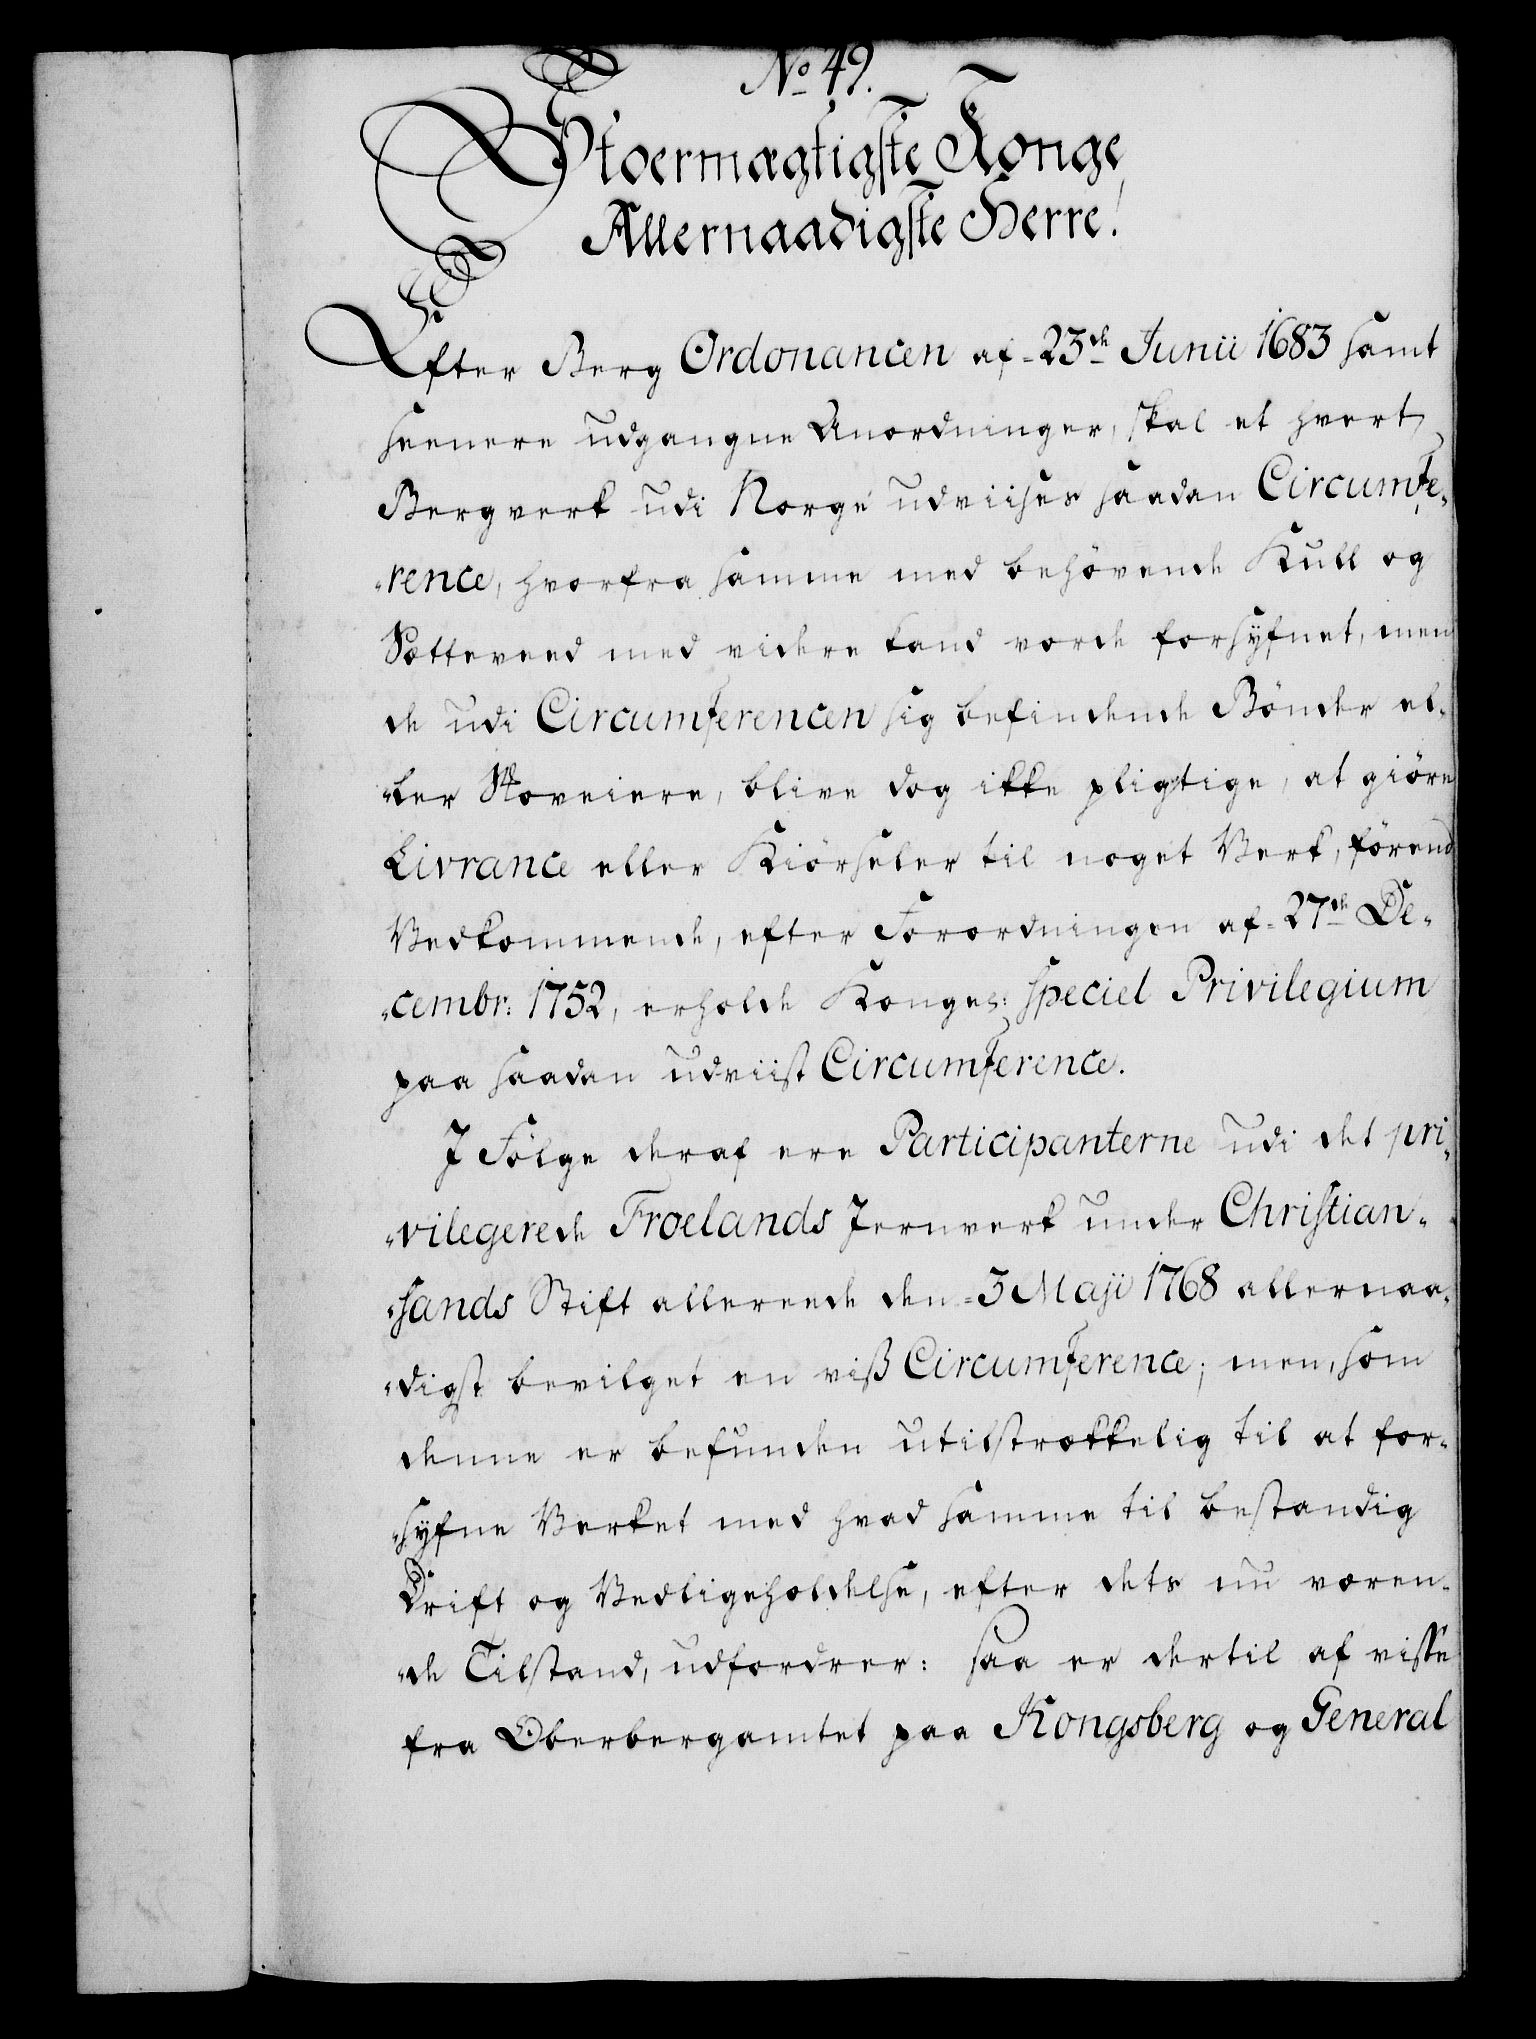 No 49.
Stoermægtigste Konge
Allernaadigste Herre!
Efter Berg Ordonancen af 23de Junii 1683 samt
seenere udgangne Anordninger, skal et hvert
Bergverk udi Norge udviises saadan Circumfe-
rence, hvorfra samme med behövende Kull og
Sætteveed med videre kand vorde forsÿfnet, men
de udi Circumferencen sig befindende Bönder el-
ler Skoveiere, blive dog ikke pligtige, at giöre
Livrance eller Kiörseler til noget Verk, förend
Vedkommende, efter Forordningen af 27de De-
cembr: 1752, erholde Konges: speciel Privilegium
paa saadan udviist Circumference.
I Fölge deraf ere Participanterne udi det pri-
vilegerede Froelands Jernverk under Christian-
sands Stift allereede den 3 Maji 1768 allernaa-
digst bevilget en viß Circumference; men, som
denne er befunden utilstrækkelig til at for-
sÿfne Verket med hvad samme til bestandig
Drift og Vedligeholdelse, efter dets nu væren-
de Tilstand, udfordrer: saa er dertil af visse
fra Oberbergamtet paa Kongsberg og General